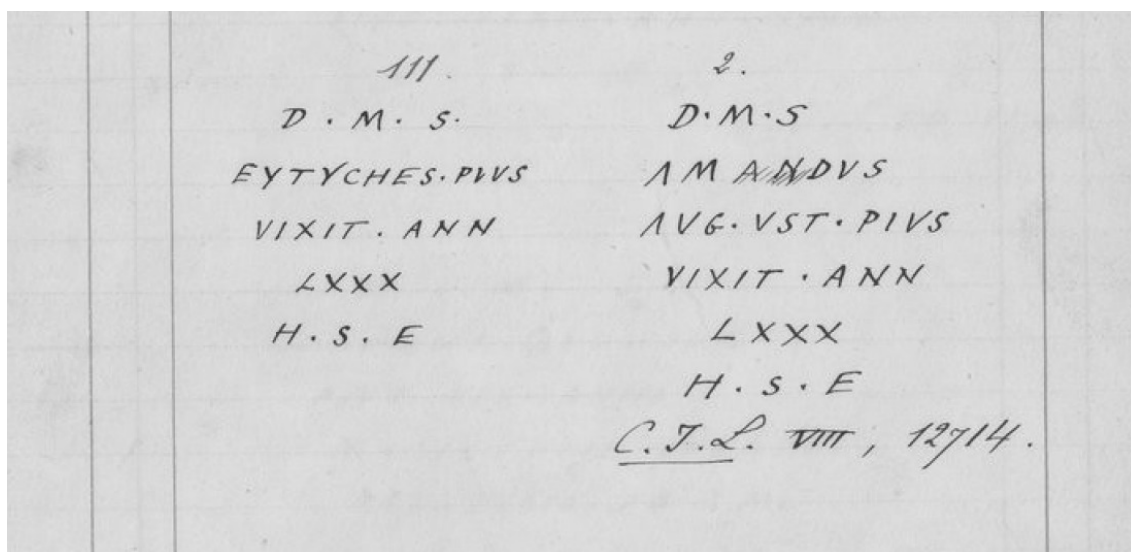 111.
D . M . S.
EYTYCHES . PIVS
VIXIT . ANN
LXXX
H . S . E
2.
D . M . S
AMANDVS
AVG . VST . PIVS
VIXIT . ANN
LXXX
H . S . E
C.I.L. VIII, 12714.